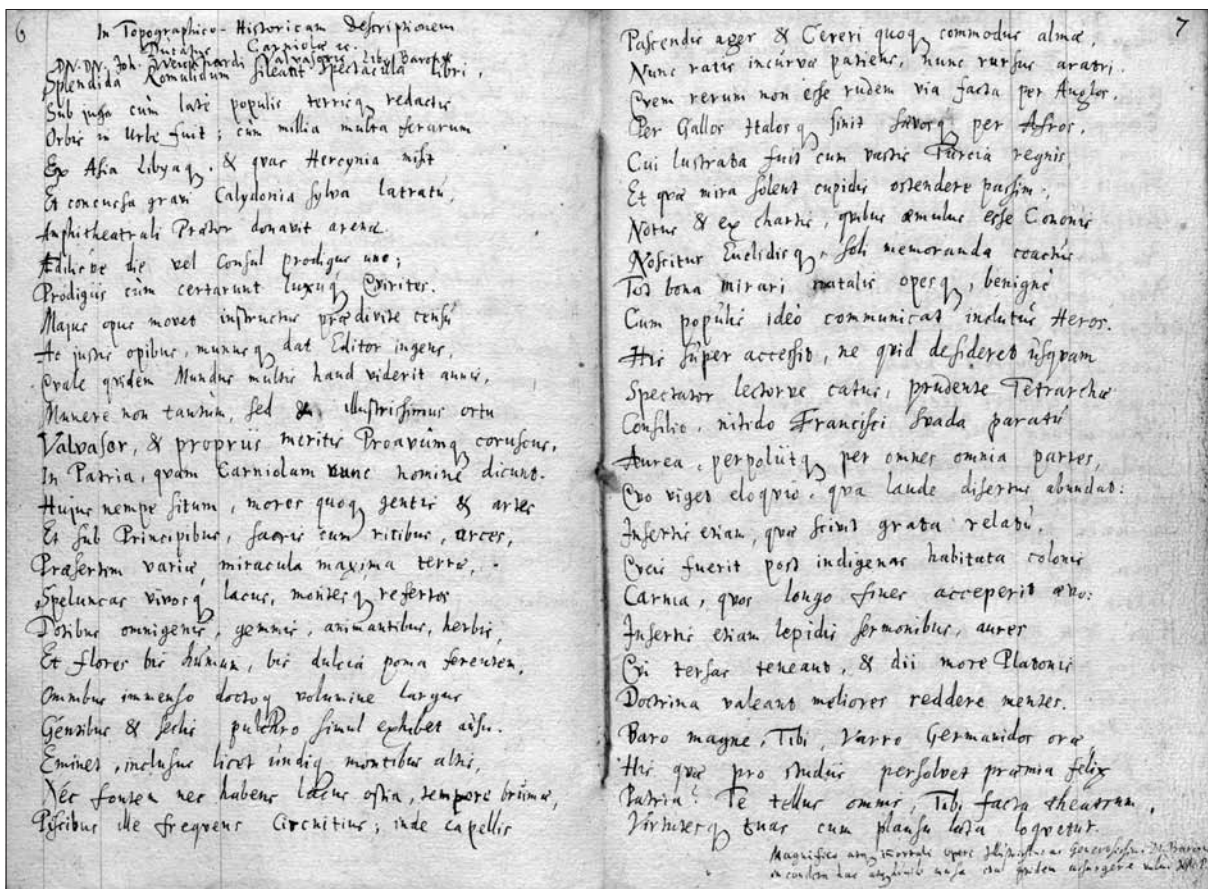 6
In Topographico-Historicam Descriptionem
Ducatus Carniolæ &c.
DN. DN. Joh. Weichardi Valvasoris Lib. Baronis
Splendida Romulidum sileant spectacula libri,
Sub juga cùm latè populis terrisq; redactis
Orbis in Urbe fuit; cùm millia multa ferarum
Ex Asia Libyaq; & quas Hercynia misit
Et concussa gravi Calydonia sylva latratú,
Amphitheatrali Prætor donavit arenæ
Ædilisve die vel Consul prodigus uno;
Prodigiis cùm certarunt luxúq; Qvirites.
Majus opus movet instructus prædivite censú
Ac justis opibus, munusq; dat Editor ingens,
Qvale qvidem Mundus multis haud viderit annis,
Munere non tantùm, sed & illustrissimus ortu
Valvasor, & propriis meritis Proavûmq; coruscus,
In Patria, qvam Carniolam nunc nomine dicunt.
Hujus nempe situm, mores quoq; gentis & artes
Et sub Principibus, sacris cum ritibus, arces,
Præsertim variæ miracula maxima terræ,
Speluncas vivosq; lacus, montesq; refertos
Dotibus omnigenis, gemmis, animantibus, herbis,
Et flores bis humum, bis dulcia poma ferentem,
Omnibus immenso doctoq; volumine largus
Gentibus & seclis pulchro simul exhibet ausu.
Eminet, inclusus licet undiq; montibus altis,
Nec fontem nec habens lacus ostia, tempore brumæ,
Piscibus ille frequens Circnitius; inde capellis
7
Pascendis ager & Cereri quoq; commodus almæ,
Nunc ratis incurvæ patiens, nunc rursus aratri.
Qvem rerum non esse rudem via facta per Anglos,
Per Gallos Italosq; sinit sævosq; per Afros,
Cui lustrata fuit cum vastis Turcia regnis,
Et quæ mira solent cupidis ostendere passim;
Notus & ex chartis, qvibus æmulus esse Cononis
Noscitur Euclidisq; soli memoranda coactis
Tot bona mirari natalis opesq; benignè
Cum populis ideò communicat inclutus Heros.
His súper accessit, ne qvid desideret usqvam
Spectator lectorve catus, prudente Tetrarchæ
Consilio, nitido Francisci Svada paratú
Aurea, perpoliitq; per omnes omnia partes,
Qvo viget eloqvio, qva laude disertus abundat:
Insertis etiam, quæ scivit grata relatú,
Qveis fuerit post indigenas habitata colonis
Carnia, qvos longo fines acceperit ævo:
Insertis etiam lepidis sermonibus, aures
Qvi tersas teneant, & dii more Platonis
Doctrina valeant meliores reddere mentes.
Baro magne, Tibi, Varro Germanidos oræ
His quæ pro studiis persolvet præmia felix
Patria? Te tellus omnis, Tibi facta theatrum,
Virtutesq; tuas cum plausu læta loqvetur.
Magnifico atq; immortali operi Illustrissimi Generosissimi D. Baronis